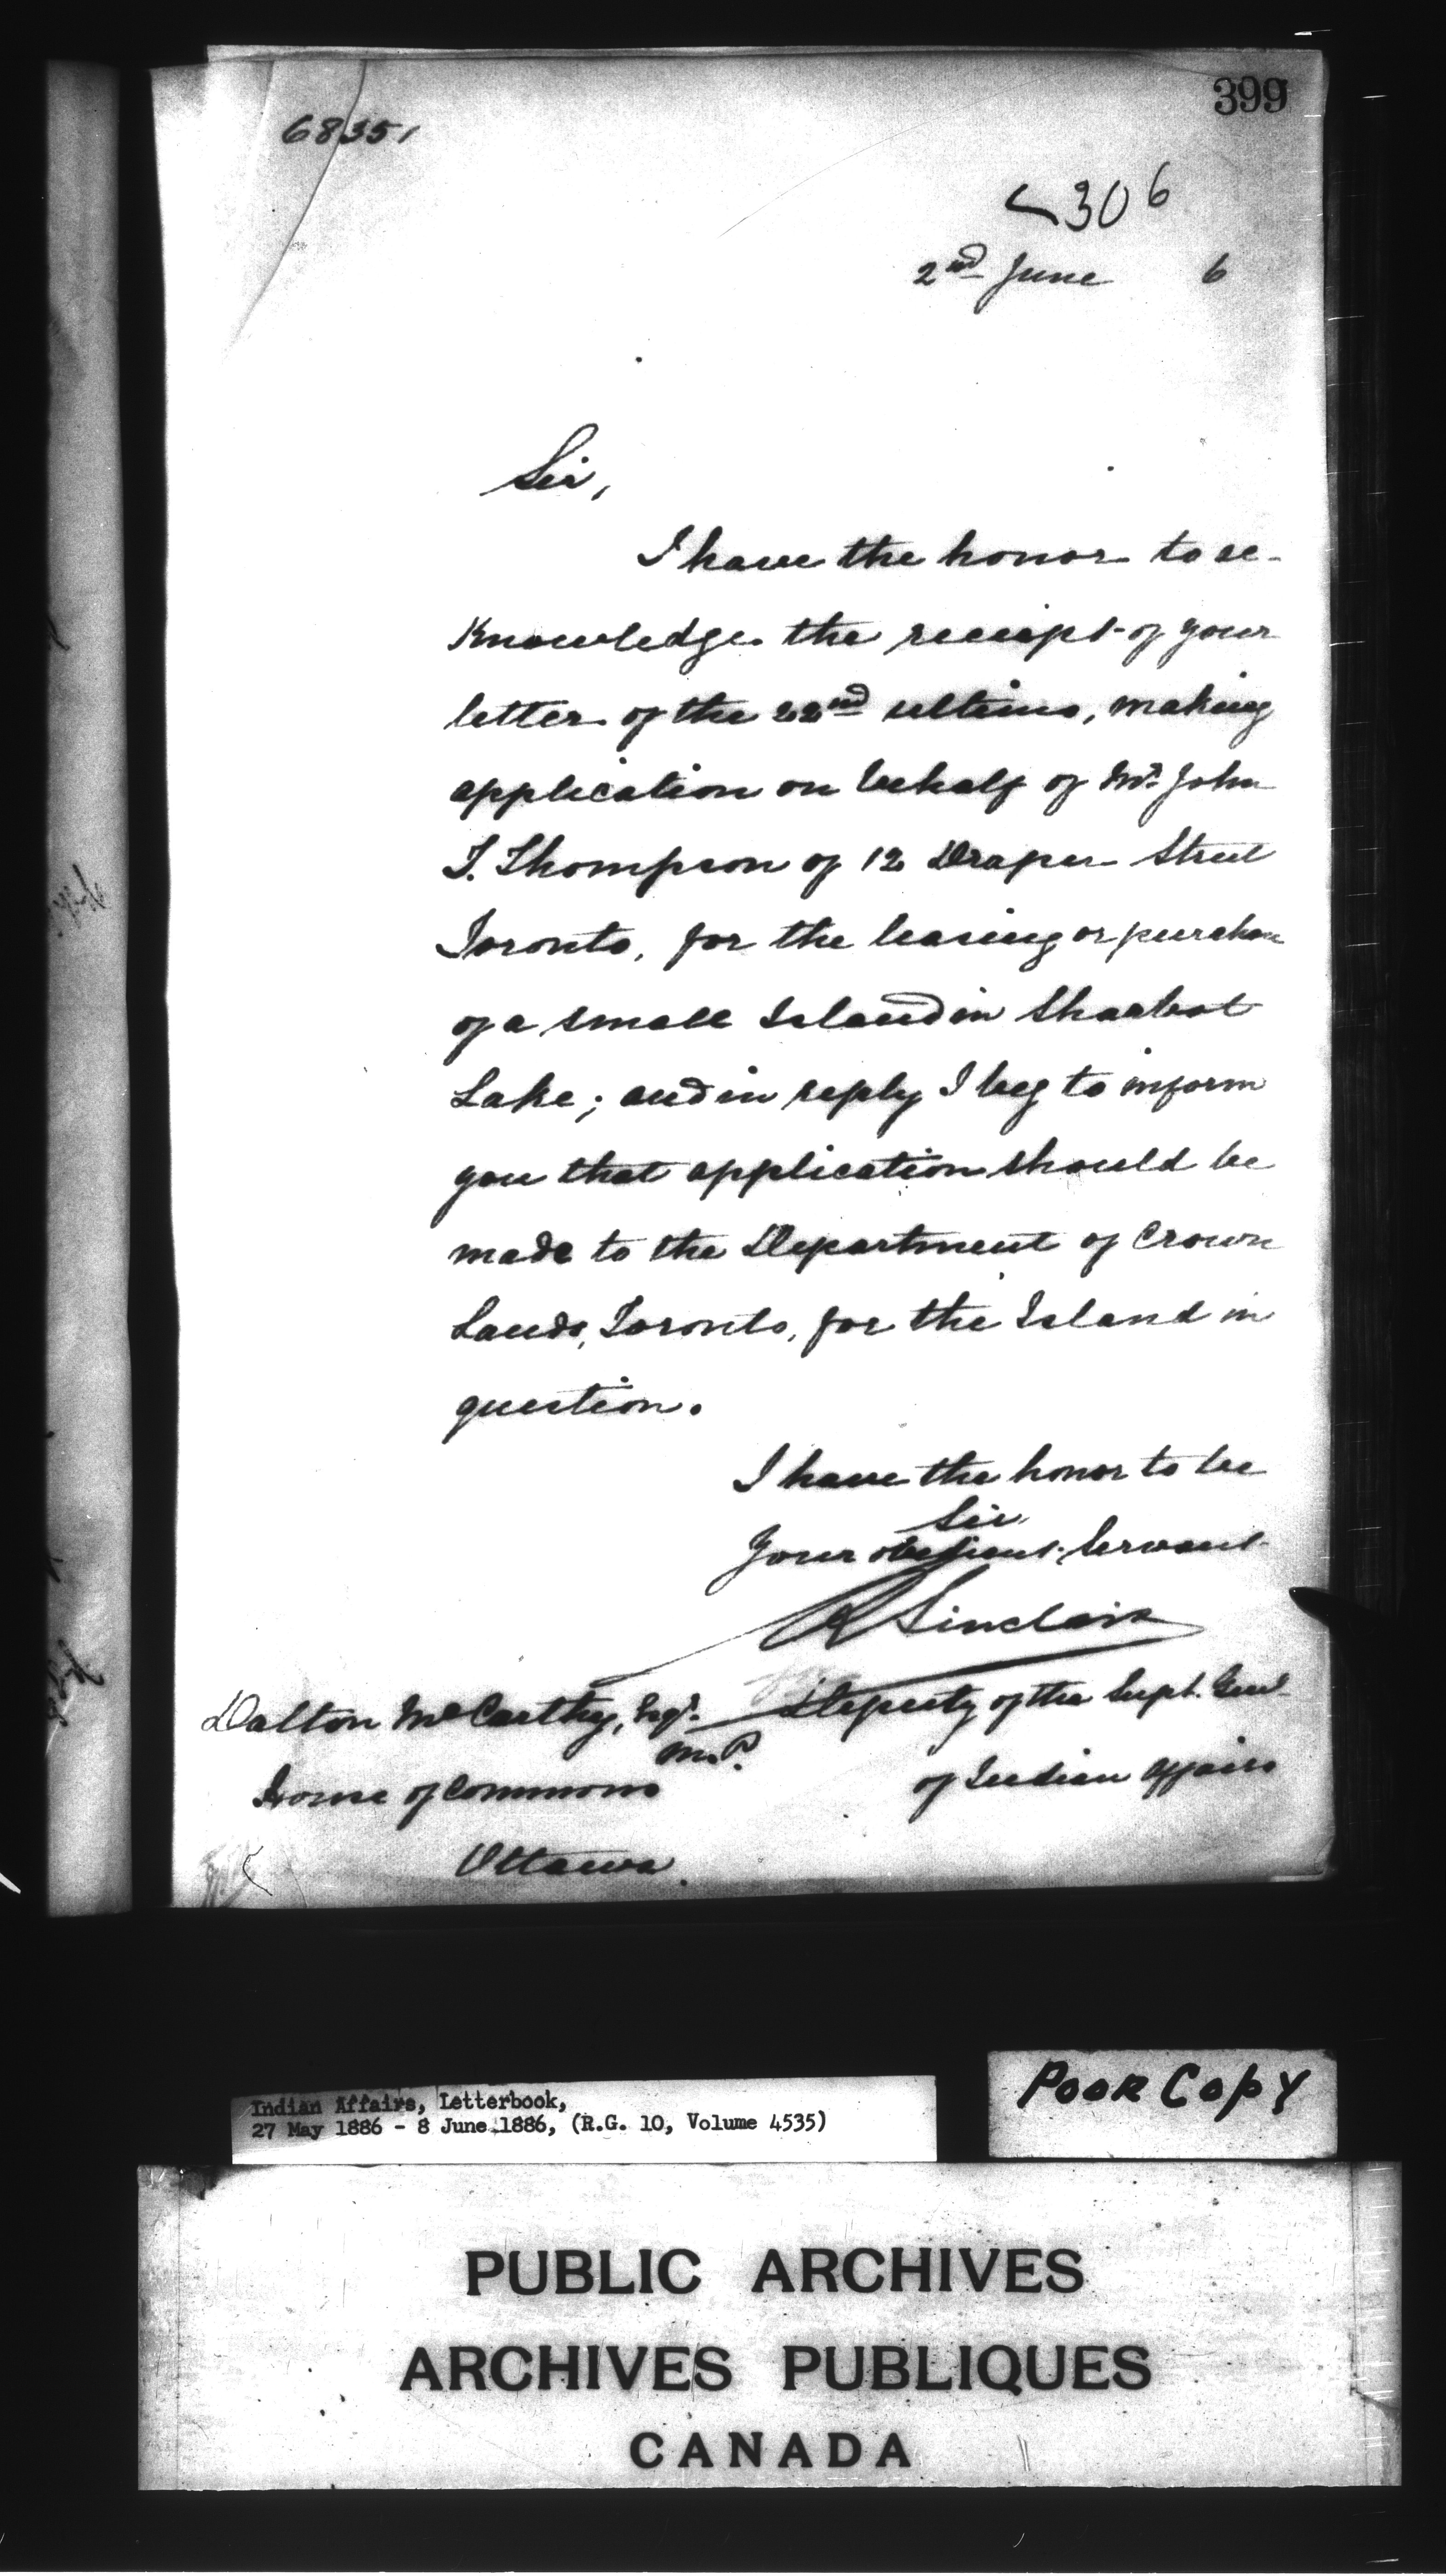 399
68351
306
2nd June 6
Sir,
I have the honor to ac-
knowledge the receipt of your
letter of the 22nd ultimo, making
application on behalf of Mr. John
T. Thompson of 12 Draper Street
Toronto, for the leasing or purchase
of a small Island in Sharbot
Lake; and in reply I beg to inform
you that application should be
made to the Department of Crown
Lands, Toronto, for the Island in
question.
I have the honor to be
Sir,
Your obedient Servant
R Sinclair
Dalton McCarthy, Esqr. Deputy of the Supt. Genl
M.P.
House of Commons of Indian Affairs
Ottawa.
Indian Affairs, Letterbook,
27 May 1886 - 8 June 1886, (R.G. 10, Volume 4535)
POOR COPY
PUBLIC ARCHIVES
ARCHIVES PUBLIQUES
CANADA